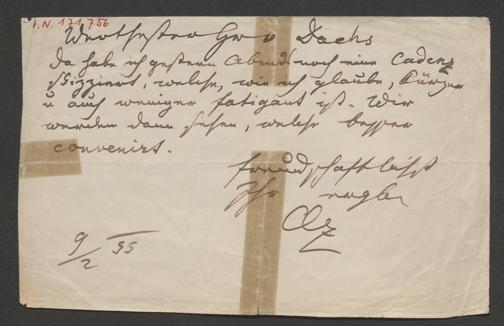 I.N. 171.756
Werthester Herr v Dachs
Da habe ich gestern Abends noch eine Cadenz
skizziert, welche, wie ich glaube, kürzer
u auch weniger fatigant ist. Wir
werden dann sehen, welche besser
convenirt.
freundschaftlichst
Ihr ergbn
9/2 55